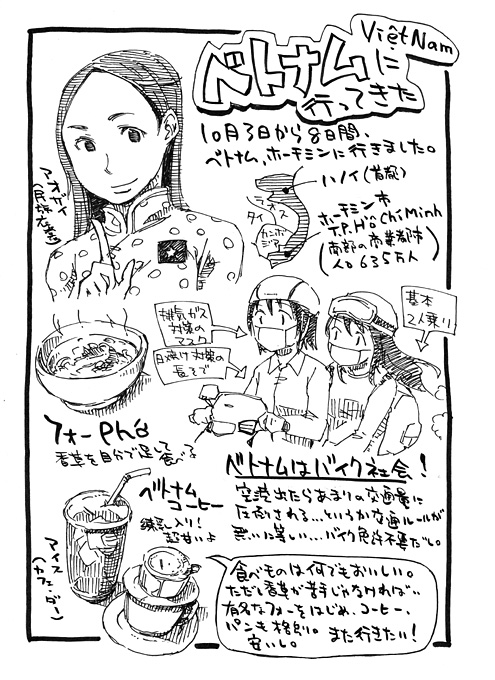 Việt Nam
ベトナムに
行ってきた
10月3日から8日間、
ベトナム、ホーチミンに行きました。
ハノイ(首都)
ラオス
タイ
カンボジア
ホーチミン市
T.P.Hồ Chí Minh
(南部の商業都市
人口635万人)
アオザイ
(民族衣装)
排気ガス
対策の
マスク
日焼け対策の
長そで
基本
2人乗り
フォー Phở
香草を自分で足して食べる
ベトナムはバイク社会!
空港出たらあまりの交通量に
圧倒される…というか交通ルールが
無いに等しい…バイク免許不要だし。
ベトナム
コーヒー
練乳入り!
超甘いよ
アイス
(カフェ・ダー)
食べものは何でもおいしい。
ただし香草が苦手じゃなければ…
有名なフォーをはじめ、コーヒー、
パンも格別。また行きたい!
安いし。